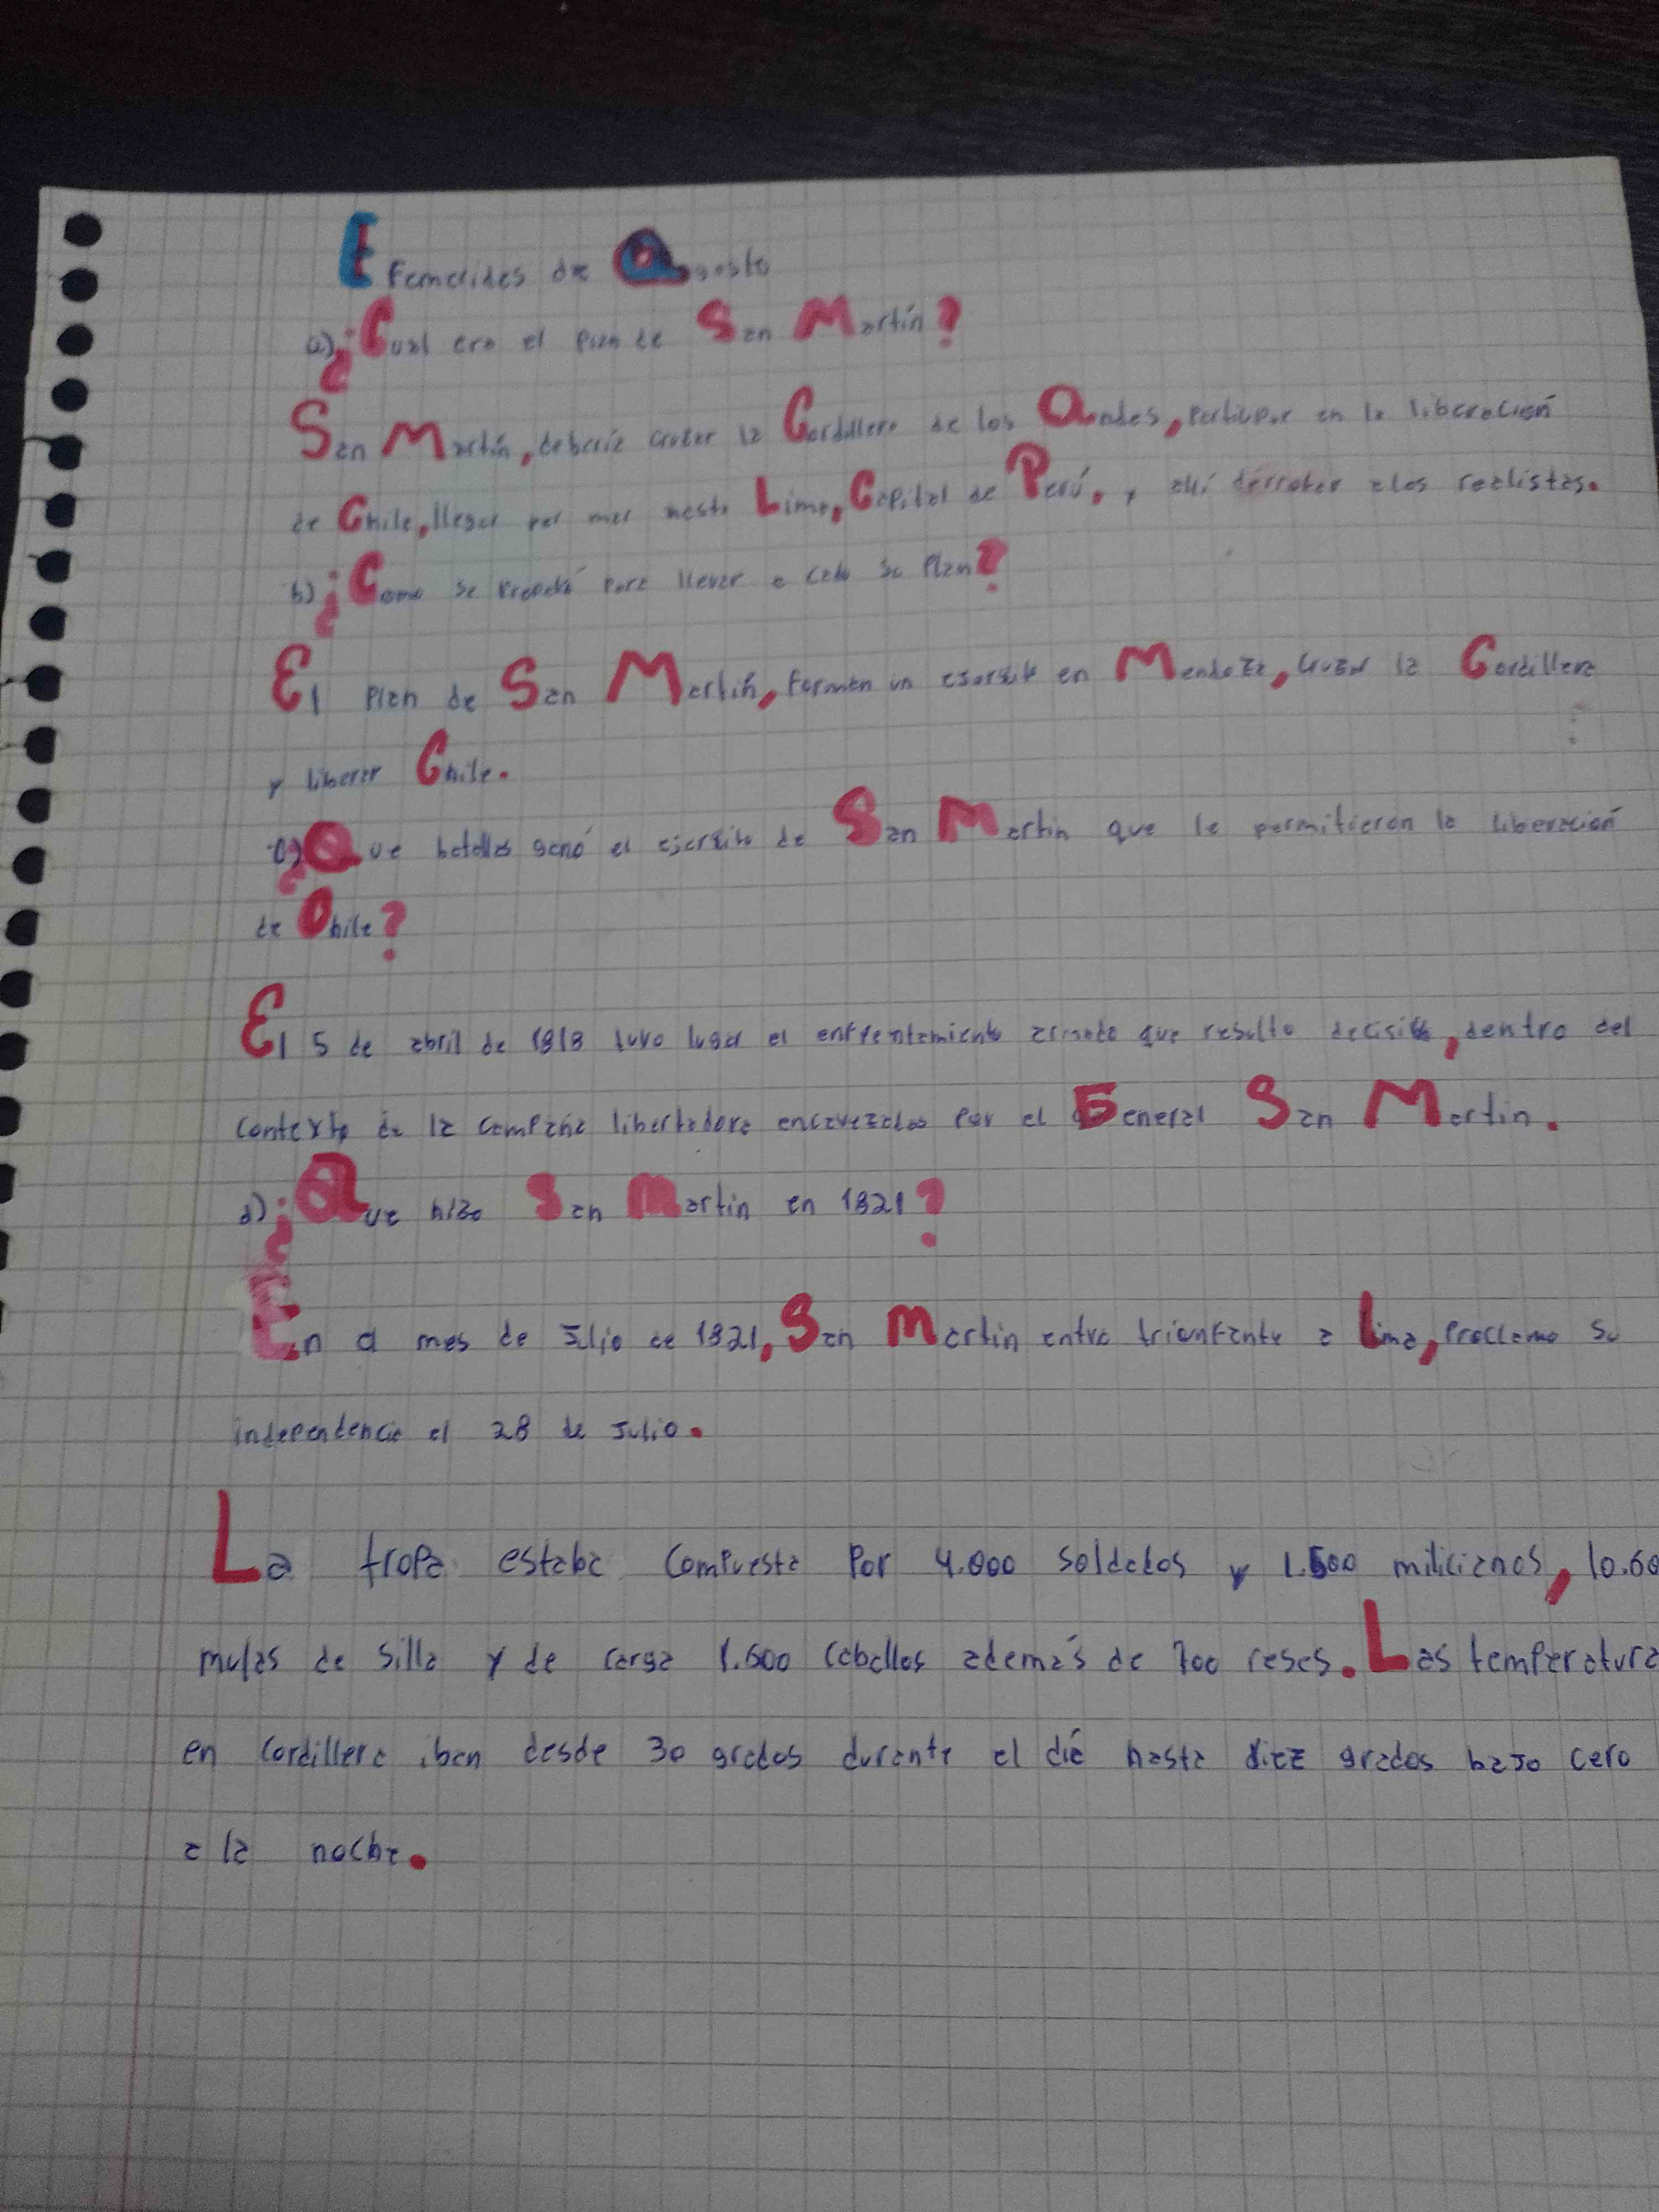 EFemerides de Agosto
a)¿Cual era el plan de San Martín?
San Martín, deberia cruzar la Cordillera de los Andes, participar en la liberación
de Chile, llegar por mar hasta Lima, Capital de Perú, y allí derrotar a los realistas.
b)¿Como se preparó para llevar a cabo su plan?
El plan de San Martín, Forman un esorsito en Mendoza, cruzar la Cordillera
y liberar Chile.
c)¿Que batallas ganó el ejersito de San Martin que le permitieron la liberación
de Chile?
El 5 de abril de 1818 tuvo lugar el enfrentamiento armado que resulto decisivo, dentro del
contexto de la campaña libertadora encavezadas por el General San Martin.
d)¿Que hizo San Martin en 1821?
En el mes de Julio de 1821, San Martin entro triunfante a Lima, proclamo su
independencia el 28 de Julio.
La tropa estaba compuesta por 4.000 soldados y 1.500 milicianos, 10.60
mulas de silla y de carga 1.600 caballos además de 700 reses. Las temperatura
en cordillera iban desde 30 grados durante el diá hasta diez grados bajo cero
a la noche.